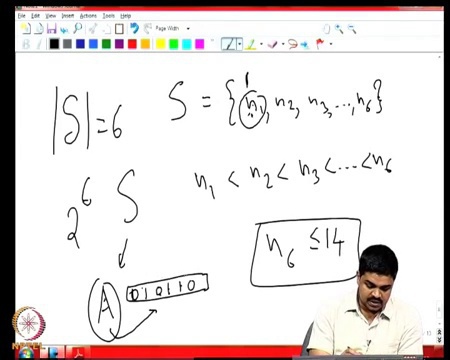 File Edit View Insert Actions Tools Help
Page Width
|S| = 6
1
S = {n1, n2, n3, ..., n6}
n1 < n2 < n3 < ... < n6
2^6 S
n6 ≤ 14
A
010110